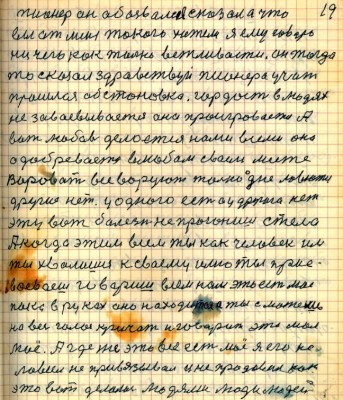 19
пионер он обозвался сказала что
вы от мня такого хотели я ему говорю
ни чего как только ветливасти, он тогда
то сказал здравствуй пионера учат
прошлая обстоновка. гордость в людях
не заваевывается она проигрывается А
вот любовь делается нами всеми она
одобревается в любом своим месте
Вороват все воруют только одне ловкости
другие нет, у одного есть а у другого нет
эту вот болезнь не прогониш с тела
А когда этим всем ты как человек
ты хвалишся к своему имю ты прис-
воеваеш говориш всем нам это есть мое
пока в руках оно находится а ты с
на все голос кричат и говорит это мол
моё. А где же это всё есть моё я его не
ловил не привязывал и не продавал как
это вот делали людями люди людей